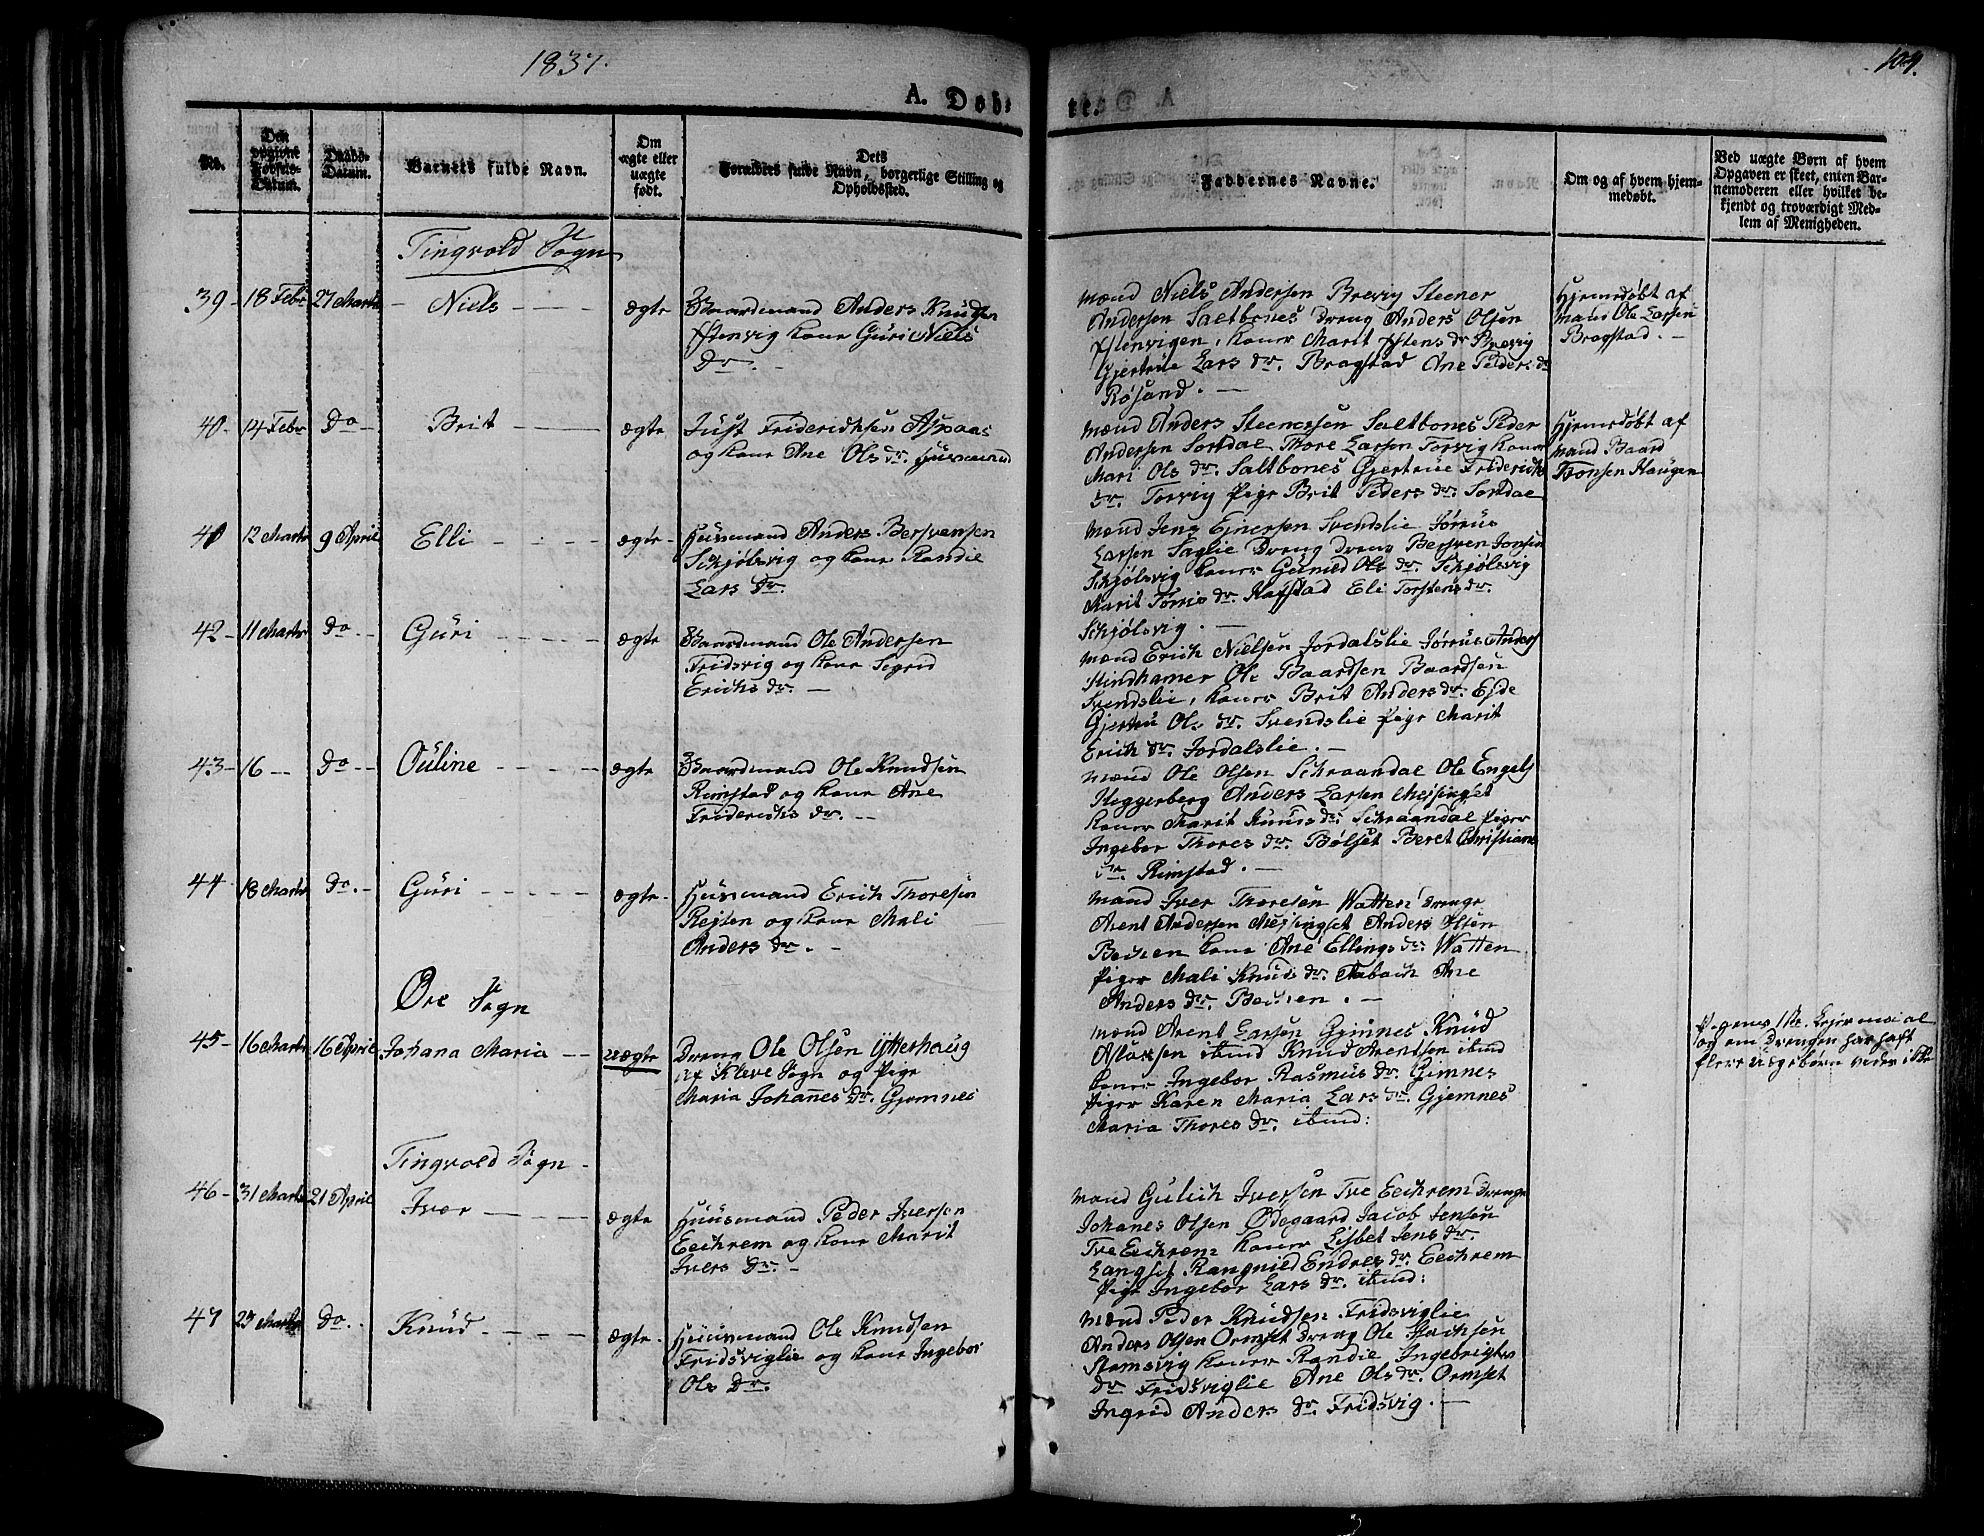 1837.
109.
A. Døb-
te.
No.
Den opgivne Fødsels-Datum.
Daabs-Datum.
Barnets fulde Navn.
Om ægte eller uægte født.
Dets Forældres fulde Navn, borgerlige Stilling og Opholdssted.
Faddernes Navne.
Om og af hvem hjemmedøbt.
Ved uægte Børn af hvem Opgaven er skeet, enten Barnemoderen eller hvilket bekjendt og troværdigt Medlem af Menigheden.
Tingvold Sogn
39 - 18 Febr 27 Marts - Niels - ægte
Gaardmand Anders Knudsen
Stenvig kone Guri Niels
Dr. -
Mænd Niels Andersen Brevig Steener
Andersen Saltbones Dreng Anders Olsen
Stenvigen, koner Marit Estens Dr Brevig
Gjertrue Lars Dr. Bragstad Ane Peders Dr
Røsand. -
Hjemdøbt af
Mand Ole Larsen
Bragstad. -
40 - 14 Febr Do - Brit - ægte
Just Friderichsen Aspaas
og kone Ane Ols Dr. Huusmand
Mænd Anders Steenersen Saltbones Peder
Andersen Sordal Thore Larsen Torvig koner
Mari Ols Dr. Saltbones Gjertrue Friderichs
Dr. Torvig Pige Brit Peders Dr. Sordal
Hjemdøbt af
Mand Baard
Haugen
41 12 Marts 9 April Elli - ægte -
Huusmand Anders Bersvensen
Schjølsvig og kone Randie
Lars Dr.
Mænd Jens Ejnersen Svendslie Jørrus
Larsen Saglie Dreng Dreng Bersven Jonsen
Schjølsvig koner Gunild Ols Dr. Schjølsvig
Marit Tørris Dr. Rafstad Eli Torstens Dr.
Schjølsvig. -
42 - 11 Marts Do - Guri - ægte
Gaardmand Ole Andersen
Fridsvig og kone Segrid
Erichs Dr. -
Mænd Erich Nielsen Jordalslie Jørrus Anders
Stindhamer Ole Baardsen Baardsen
Svendslie, koner Brit Anders Dr. Ejde
Gjertru Ols Dr. Svendslie Pige Marit
Erich Dr. Jordalslie. -
43 - 16 - Do - Ouline - ægte
Gaardmand Ole Knudsen
Rimstad og kone Ane
Friderichs Dr. -
Mænd Ole Olsen Schraandal Ole Engels
Heggerberg Anders Larsen Mejsingset
koner Marit Knuds Dr. Schraandal Piger
Ingebor Thores Dr. Bølset Beret Christians
Dr. Rimstad. -
44 - 18 Marts Do. - Guri - ægte -
Huusmand Erich Thoresen
Rejten og kone Mali
Anders Dr. -
Mænd Iver Thoresen Watten Drenge
Arent Andersen Mejsingset Anders Olsen
kone Ane Ellings Dr. Watten
Piger Mali Knuds Dr. Ane
Anders Dr. -
Øre Sogn
45 - 16 Marts 16 April Johana Maria - uægte
Dreng Ole Olsen Ytterhoug
af Sogn og Pige
Maria Johannes Dr. Gjemnes
Mænd Arent Larsen Gjimnes Knud
Aslaksen ibmd Knud Arentsen ibmd
koner Ingebor Rasmus Dr. Gjemnes
Piger Karen Maria Lars Dr. Gjemnes
Maria Thores Dr. ibmd:
Pigens 1ste Lejermaal
og om Drengen har haft
flere uægte børn vides ikke
Tingvold Sogn -
46 - 31 Marts 21 April Iver - ægte
Huusmand Peder Iversen
Eechrem og kone Marit
Ivers Dr. -
Mænd Gulich Iversen Tve Eechrem Drenge
Johanes Olsen Ødegaard Jacob Jensen
Tve Eechrem koner Lisbet Jens Dr.
Langset Rangnild Endres Dr. Eechrem
Pige Ingebor Lars Dr. ibmd:
47 25 Marts Do. - Knud - ægte -
Huusmand Ole Knudsen
Fridsviglie og kone Ingebor
Ols Dr.
Mænd Peder Knudsen Fridsviglie
Anders Olsen Ormset Dreng Ole
Stomsvig koner Randie Ingebrigts
Dr Fridsviglie Ane Ols Dr. Ormset
Ingrid Anders Dr. Fridsvig. -